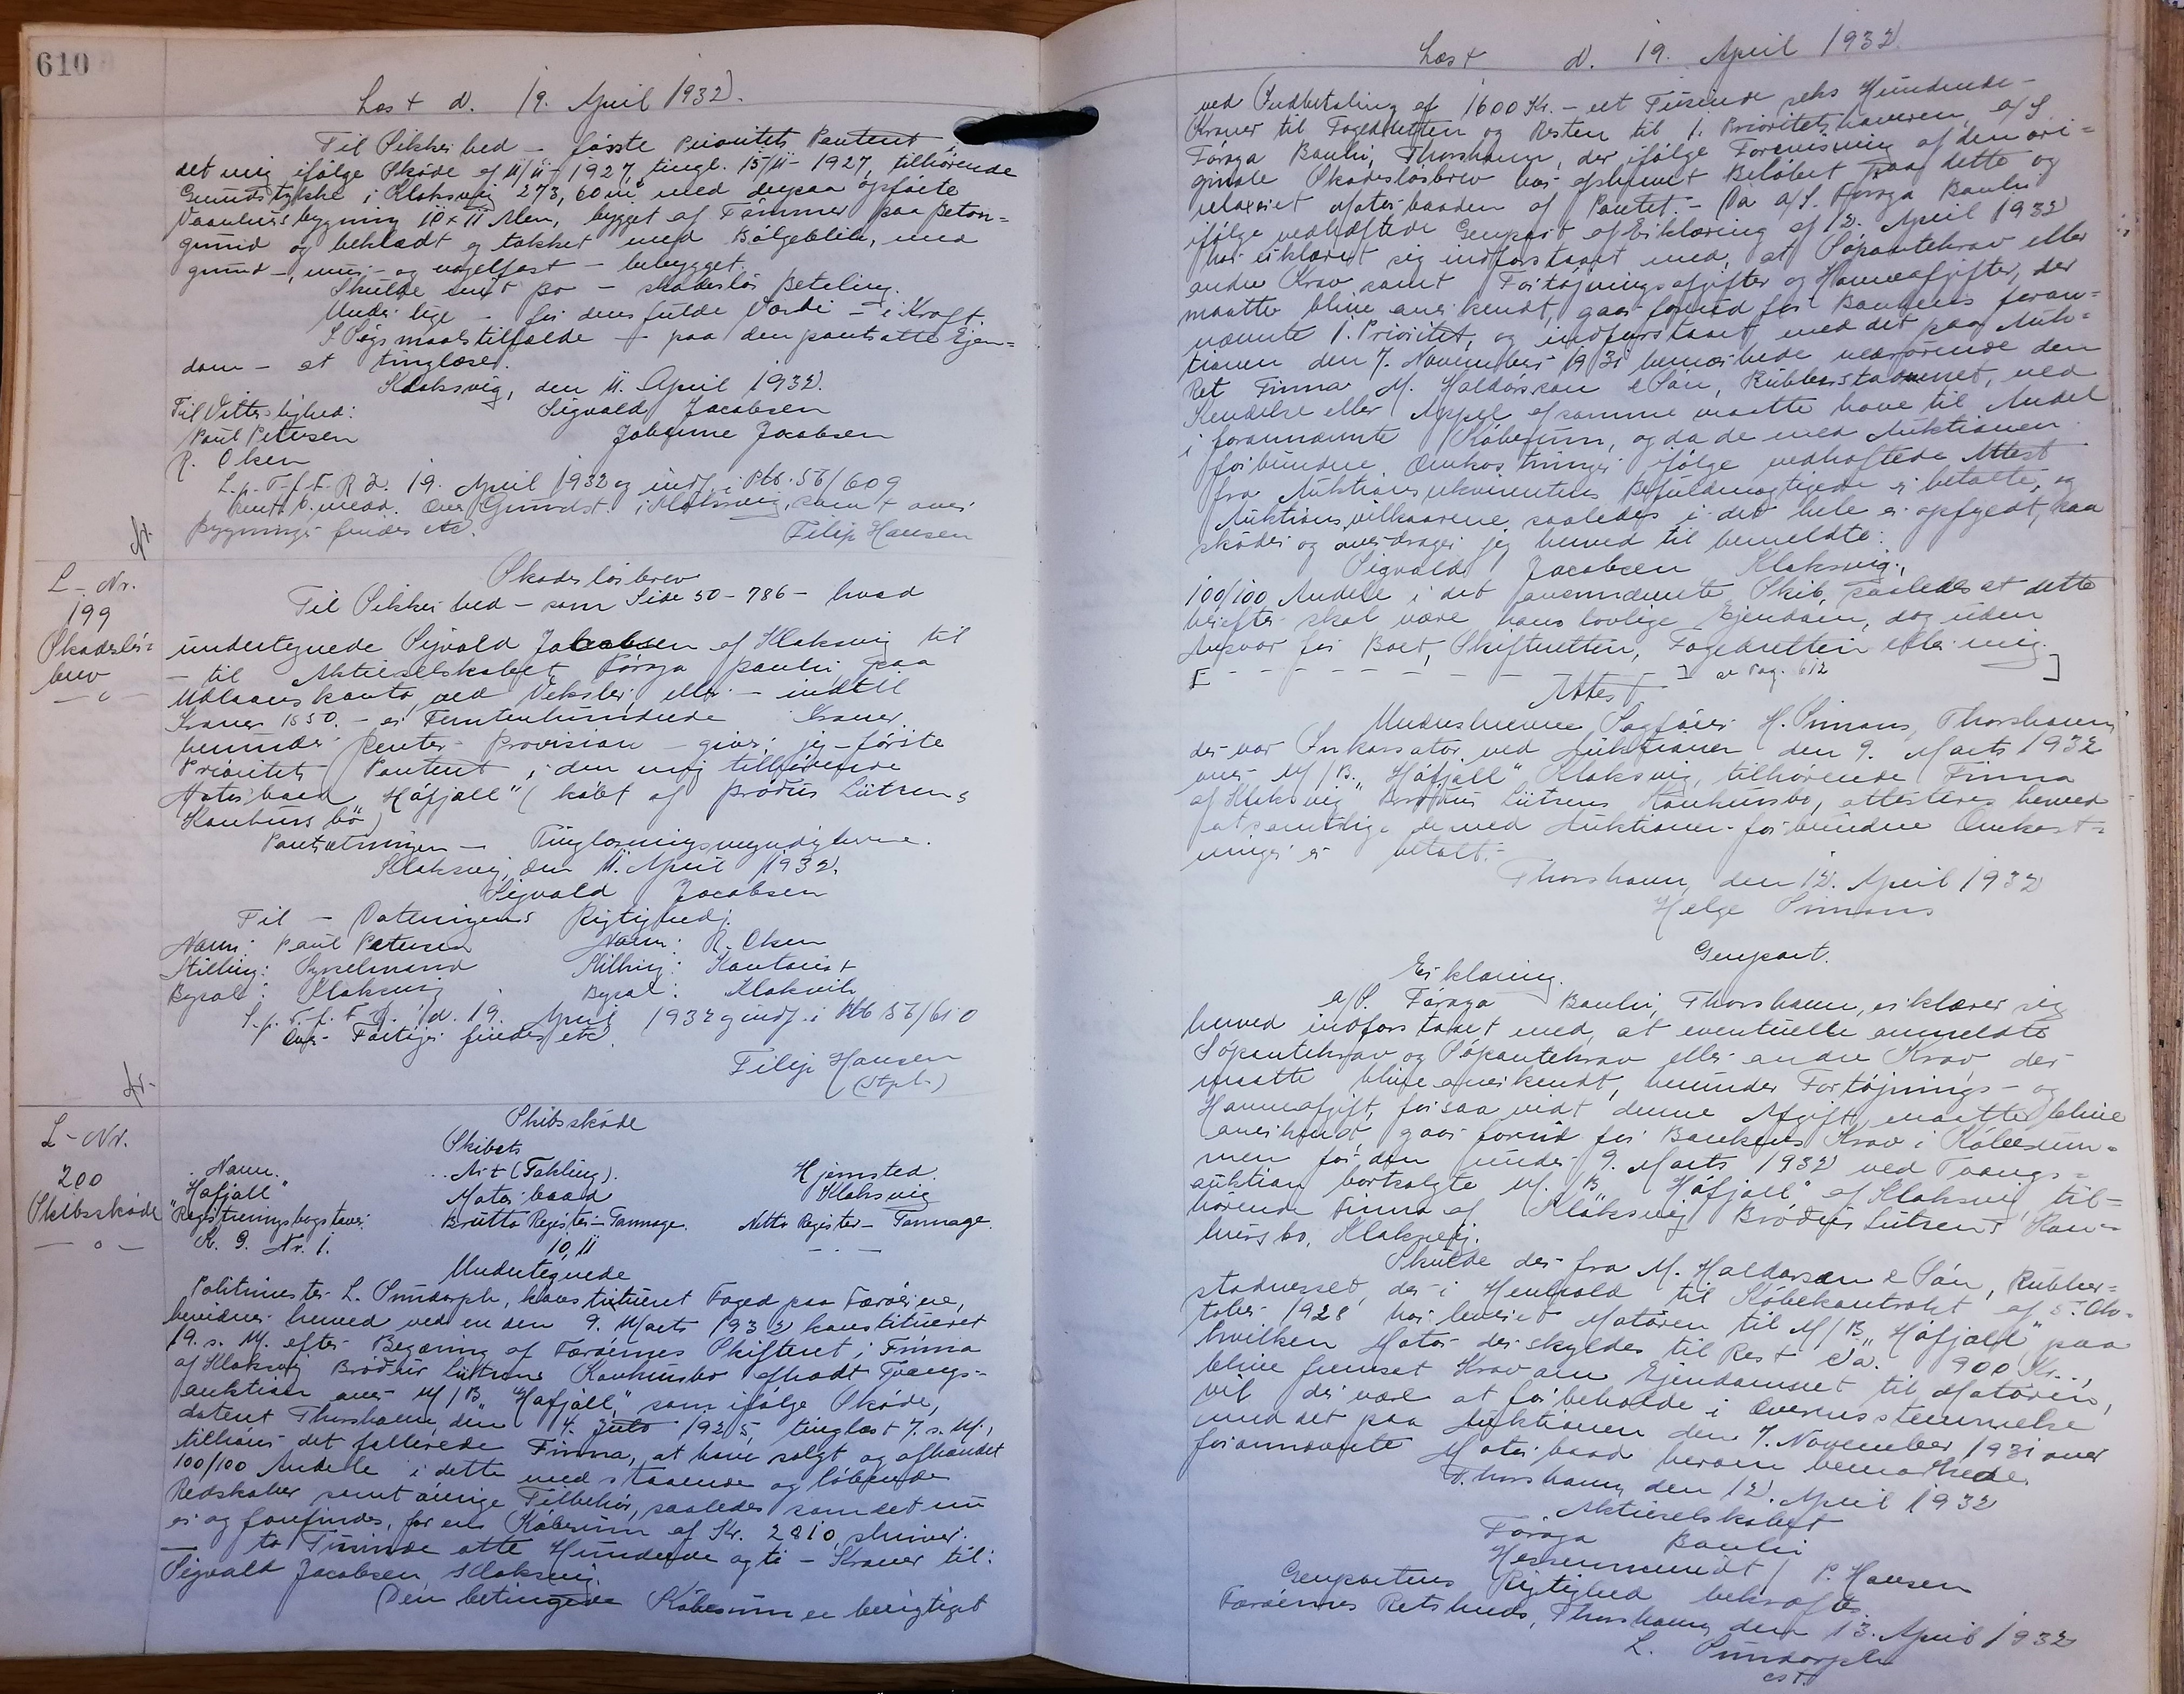 610
Læst d. 19. April 1932.
Til Sikkerhed - første Prioritets Panteret i
det mig ifølge Skøde af 11/11-1927, tingl. 15/11-1927, tilhørende
Grundstykke i Klaksvig 273,60 m² med derpaa opførte
Vaanhusbygning 10 x 11 Alen, bygget af Tømmer paa Beton=
grund og beklædt og takket med Bølgeblik, med
grund-, mur- og nagelfast - bebygget.
Skulde - skadesløs Betaling.
Under lige - for dens fulde Værdi - i Kraft.
I Søgsmaalstilfælde - paa den pantsatte Ejen=
dom - at tinglæses.
Klaksvig, den 11. April 1932.
Til Vitterlighed: Sigvald Jacobsen
Paul Petersen Johanne Jacobsen
R. Olsen
L. p. T. f. F. R. d. 19. April 1932 og indf. i Ptb. 56/609
over Grundst. i Klaksvig, samt over
Bygninger findes etc. Filip Hansen
L-Nr.
199
Skadesløs=
brev
Skadesløsbrev
Til Sikkerhed - som Side 50-786 - hvad
undertegnede Sigvald Jacobsen af Klaksvig til
- til Aktieselskabet Føroya Banki paa
Udlaanskonto, ved Veksler, eller - indtil
Kroner 1550. - er Femtenhundrede Kroner.
herunder Renter - Provision - giver jeg - første
Prioritets Panteret i den mig tilhørende
Motorbaad "Háfjall" (købt af Brødur Lützens
Konkurs bo)
Pantsætningen - Tinglæsningsmyndighederne.
Klaksvig, den 11. April 1932.
Sigvald Jacobsen
Til - Dateringens Rigtighed:
Navn: Paul Petersen Navn: R. Olsen
Stilling: Sysselmand Stilling: Kontorist
Bopæl: Klaksvig Bopæl: Klaksvik
L. p. T. f. F. R. d. 19. April 1932 og indf. i Ptb 56/610
Over Fartøjer findes etc.
Filip Hansen
(Stpl.)
L-Nr.
200
Skibsskøde
Skibsskøde
Skibets
Navn. Art (Takling). Hjemsted.
"Háfjall" Motorbaad Klaksvig
Registreringsbogstaver: Brutto Register-Tonnage. Netto Register-Tonnage.
K. G. Nr. 1. 10,11 - - -
Undertegnede
Politimester L. Sundorph, konstitueret Foged paa Færøerne,
bevidner herved ved en den 9. Marts 1932 konstitueret
19. s. M. efter Begæring af Færøernes Skifteret i Firma
af Klaksvig Brødur Lützens Konkursbo afholdt Tvangs-
auktion over M/B "Háfjall", som ifølge Skøde,
dateret Thorshavn, den 4. Juli 1925, tinglæst 7. s. M.,
tilhører det fallerede Firma, at have solgt og afhændet
100/100 Andele i dette med staaende og løbende
Redskaber samt øvrige Tilbehør, saaledes som det nu
er og forefindes, for en Købesum af Kr. 2810, skriver
to Tusinde otte Hundrede og ti - Kroner til:
Sigvald Jacobsen, Klaksvig.
Den betingede Købesum er berigtiget
Læst d. 19. April 1932.
ved Indbetaling af 1600 Kr. - eet Tusinde seks Hundrede -
Kroner til Fogedretten og Resten til 1. Prioritetshaveren, A/S
Føroya Banki, Thorshavn, der ifølge Forevisning af den ori=
ginale Skadesløsbrev har ophævet Beløbet paa dette og
relaxeret Motorbaaden af Pantet. - Da A/S. Føroya Banki
ifølge vedhæftede Genpart af Erklæring af 12. April 1932
har erklæret sig indforstaaet med, at Søpantekrav eller
andre Krav samt Fortøjningsafgifter og Havneafgifter, der
maatte blive anerkendt, gaar forud for Bankens foran=
nævnte 1. Prioritet, og indforstaaet med det paa Auk=
tionen den 7. November 1931 bemærkede vedrørende den
Ret Firma M. Haldorsen & Søn, Rubbestadneset, ved
Kendelse eller Appel af samme maatte have til Andel
i forannævnte Købesum, og da de med Auktionen
forbundne Omkostninger ifølge vedhæftede Attest
fra Auktionsrekvirentens Befuldmægtigede er betalte, og
Auktionsvilkaarene saaledes i det hele er opfyldt, saa
skøder og overdrager jeg herved til bemeldte:
Sigvald Jacobsen Klaksvig,
100/100 Andele i det forannævnte Skib, saaledes at dette
herefter skal være hans lovlige Ejendom, dog uden
Ansvar for Boet, Skifteretten, Fogedretten eller mig.
[ - - - - - - - - - ] se Pag. 612 ]
Attest
Undertegnede Sagfører H. Simons, Thorshavn,
der var Inkassator ved Auktionen den 9. Marts 1932
over M/B. "Háfjall" Klaksvig, tilhørende Firma
af Klaksvig Brødur Lützens Konkursbo, attesterer herved
at samtlige de med Auktionen forbundne Omkost=
ninger er betalt.
Thorshavn, den 12. April 1932
Helge Simons
Genpart.
Erklæring.
A/S. Føroya Banki, Thorshavn, erklærer sig
herved indforstaaet med, at eventuelle anmeldte
Søpantekrav og Søpantekrav eller andre Krav, der
maatte blive anerkendt, herunder Fortøjnings- og
Havneafgift, forsaavidt denne Afgift maatte blive
anerkendt, gaar forud for Bankens Krav i Købesum=
men for den under 9. Marts 1932 ved Tvangs=
auktion bortsolgte M./B. "Háfjall" af Klaksvig, til=
hørende Firma af Klaksvig Brødur Lützens Kon=
kursbo, Klaksvig.
Skulde der fra M. Haldorsen & Søn, Rubbe=
stadnesset, der i Henhold til Købekontrakt af 5. Ok=
tober 1928 har leveret Motoren til M/B "Háfjall" paa
hvilken Motor der skyldes til Rest ca. 900 Kr.,
blive fremsat Krav om Ejendomsret til Motoren,
vil der være at forbeholde i Overensstemmelse
med det paa Auktionen den 7. November 1931 over
forannævnte Motorbaad herom bemærkede.
Thorshavn, den 12. April 1932
Aktieselskabet
Føroya Banki
P. Hansen
Genpartens Rigtighed bekræftes.
Færøernes Retskreds, Thorshavn, den 13. April 1932
L. Sundorph
cst.